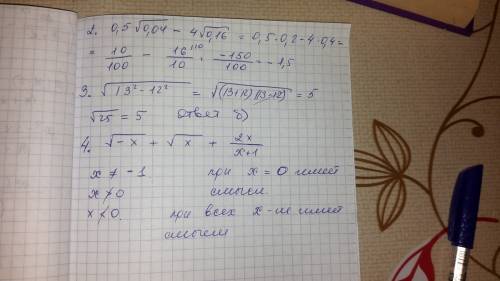 2. 0,5√0,04 - 4√0,16 = 0,5·0,2-4·0,4=
= 10/100 - 16/10 ^(10) = -150/100 = -1,5
3. √13²-12² = √(13+12)(13-12) = 5
√25 = 5 ответ б)
4. √-x + √x + 2x/x+1
x ≠ -1 при x = 0 имеет
x ≯ 0 смысл
x ≮ 0. при всех x - не имеет
смысла